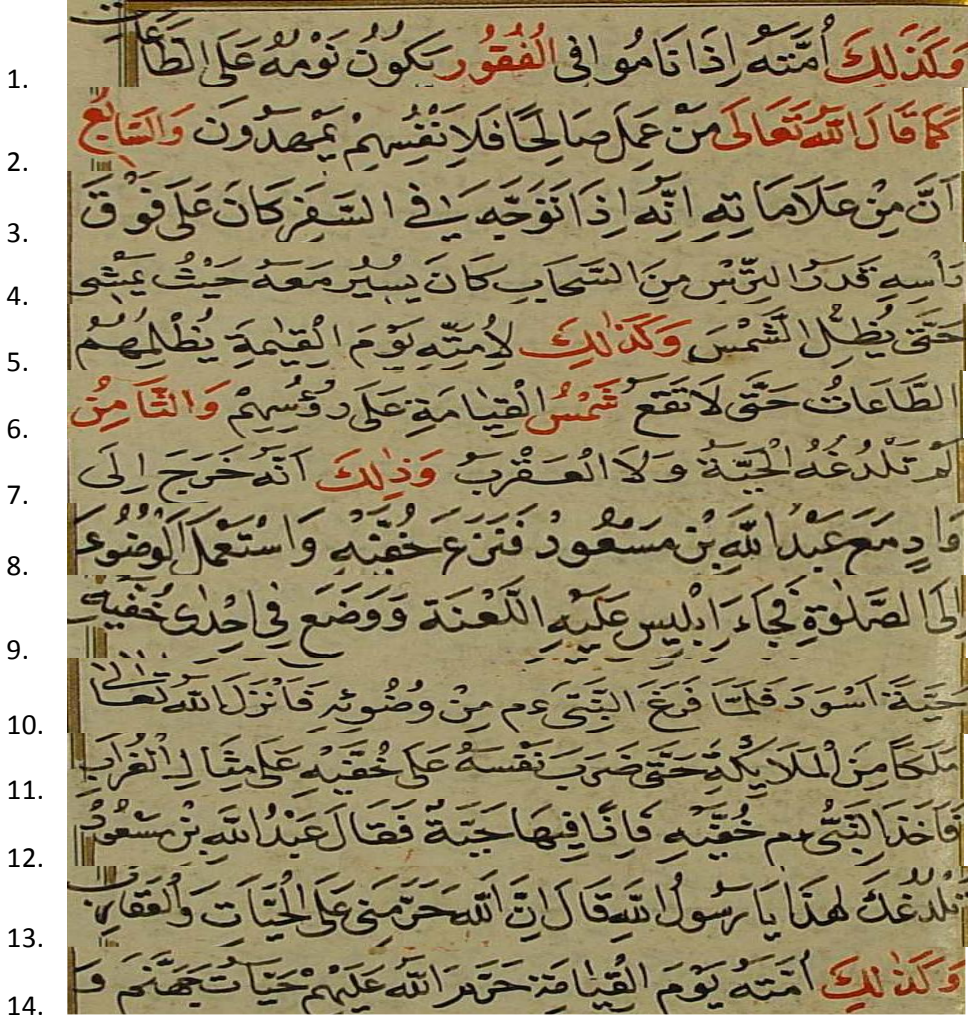 1. وَكَذَلِكَ أُمَّتَهُ إِذَا نَامُوا فِى الْفُقُورِ يَكُونُ نَوْمُهُ عَلَى الطَّاعَاتِ
2. كَمَا قَالَ اللهُ تَعَالَى مَنْ عَمِلَ صَالِحًا فَلِاَنْفُسِهِمْ يَمْهَدُونَ وَالسَّابِعُ
3. اَنَّ مِنْ عَلَامَاتِهِ اِنَّهُ اِذَا تَوَجَّهَ فِى السَّفَرِ كَانَ عَلَى فَوْقَ
4. رَأْسِهِ قَدَرُ التُّرْسِ مِنَ السَّحَابِ كَانَ يَسِيرُ مَعَهُ حَيْثُ يَمْشِى
5. حَتَّى يُظِلَّ الشَّمْسَ وَكَذٰلِكَ لِاُمَّتِهِ يَوْمَ الْقِيٰمَةِ يُظِلُّهُمُ
6. الطَّاعَاتُ حَتَّى لَا تَقَعَ شَمْسُ الْقِيَامَةِ عَلَى رُؤُسِهِمْ وَالثَّامِنُ
7. لَمْ تَلْدُغْهُ الْحَيَّةُ وَلَا الْعَقْرَبُ وَذٰلِكَ اَنَّهُ خَرَجَ اِلَى
8. وَادٍ مَعَ عَبْدِ اللهِ بْنِ مَسْعُودٍ فَنَزَعَ خُفَّيْهِ وَاسْتَعْمَلَ الْوُضُوءَ
9. اِلَى الصَّلٰوةِ فَجَاءَ اِبْلِيسُ عَلَيْهِ اللَّعْنَة وَوَضَعَ فِى اِحْدٰى خُفَّيْهِ
10. حَيَّةً اَسْوَدَ فَلَمَّا فَرَغَ النَّبِىُّ عم مِنْ وُضُوئِهِ فَاَنْزَلَ اللهُ تَعَالٰى
11. مَلَكًا مِنَ الْمَلَائِكَةِ حَتَّى ضَرَبَ نَفْسَهُ عَلَى خُفَّيْهِ عَلَى مِثَالِ الْغُرَابِ
12. فَاَخَذَ النَّبِىُّ عم خُفَّيْهِ فَاِذَا فِيهَا حَيَّةٌ فَقَالَ عَبْدُ اللهِ بْنُ مَسْعُودٍ
13. تَلْدُغُكَ هٰذَا يَا رَسُولَ اللهِ قَالَ اِنَّ اللهَ حَرَّمَنِى عَلَى الْحَيَّاتِ وَالْعَقَارِبِ
14. وَكَذٰلِكَ اُمَّتَهُ يَوْمَ الْقِيَامَةِ حَرَّمَ اللهُ عَلَيْهِمْ حَيَّاتُ جَهَنَّمَ وَ